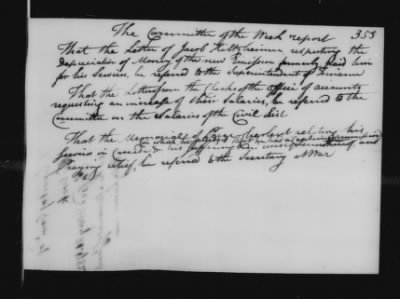 The Committee of the Week report
353
That the Letter of Jacob Hiltzheimer respecting the
depreciation of Money of the new Emission formerly paid him
for his Services, be referred to the Superintendent of Finance
That the Letter from the Clerks of the Office of accounts
requesting an increase of their Salaries, be referred to the
Committee on the Salaries of the Civil List
That the Memorial of relating his
Services in Canada & his sufferings in consequence and
Praying relief, be referred to the Secretary at War